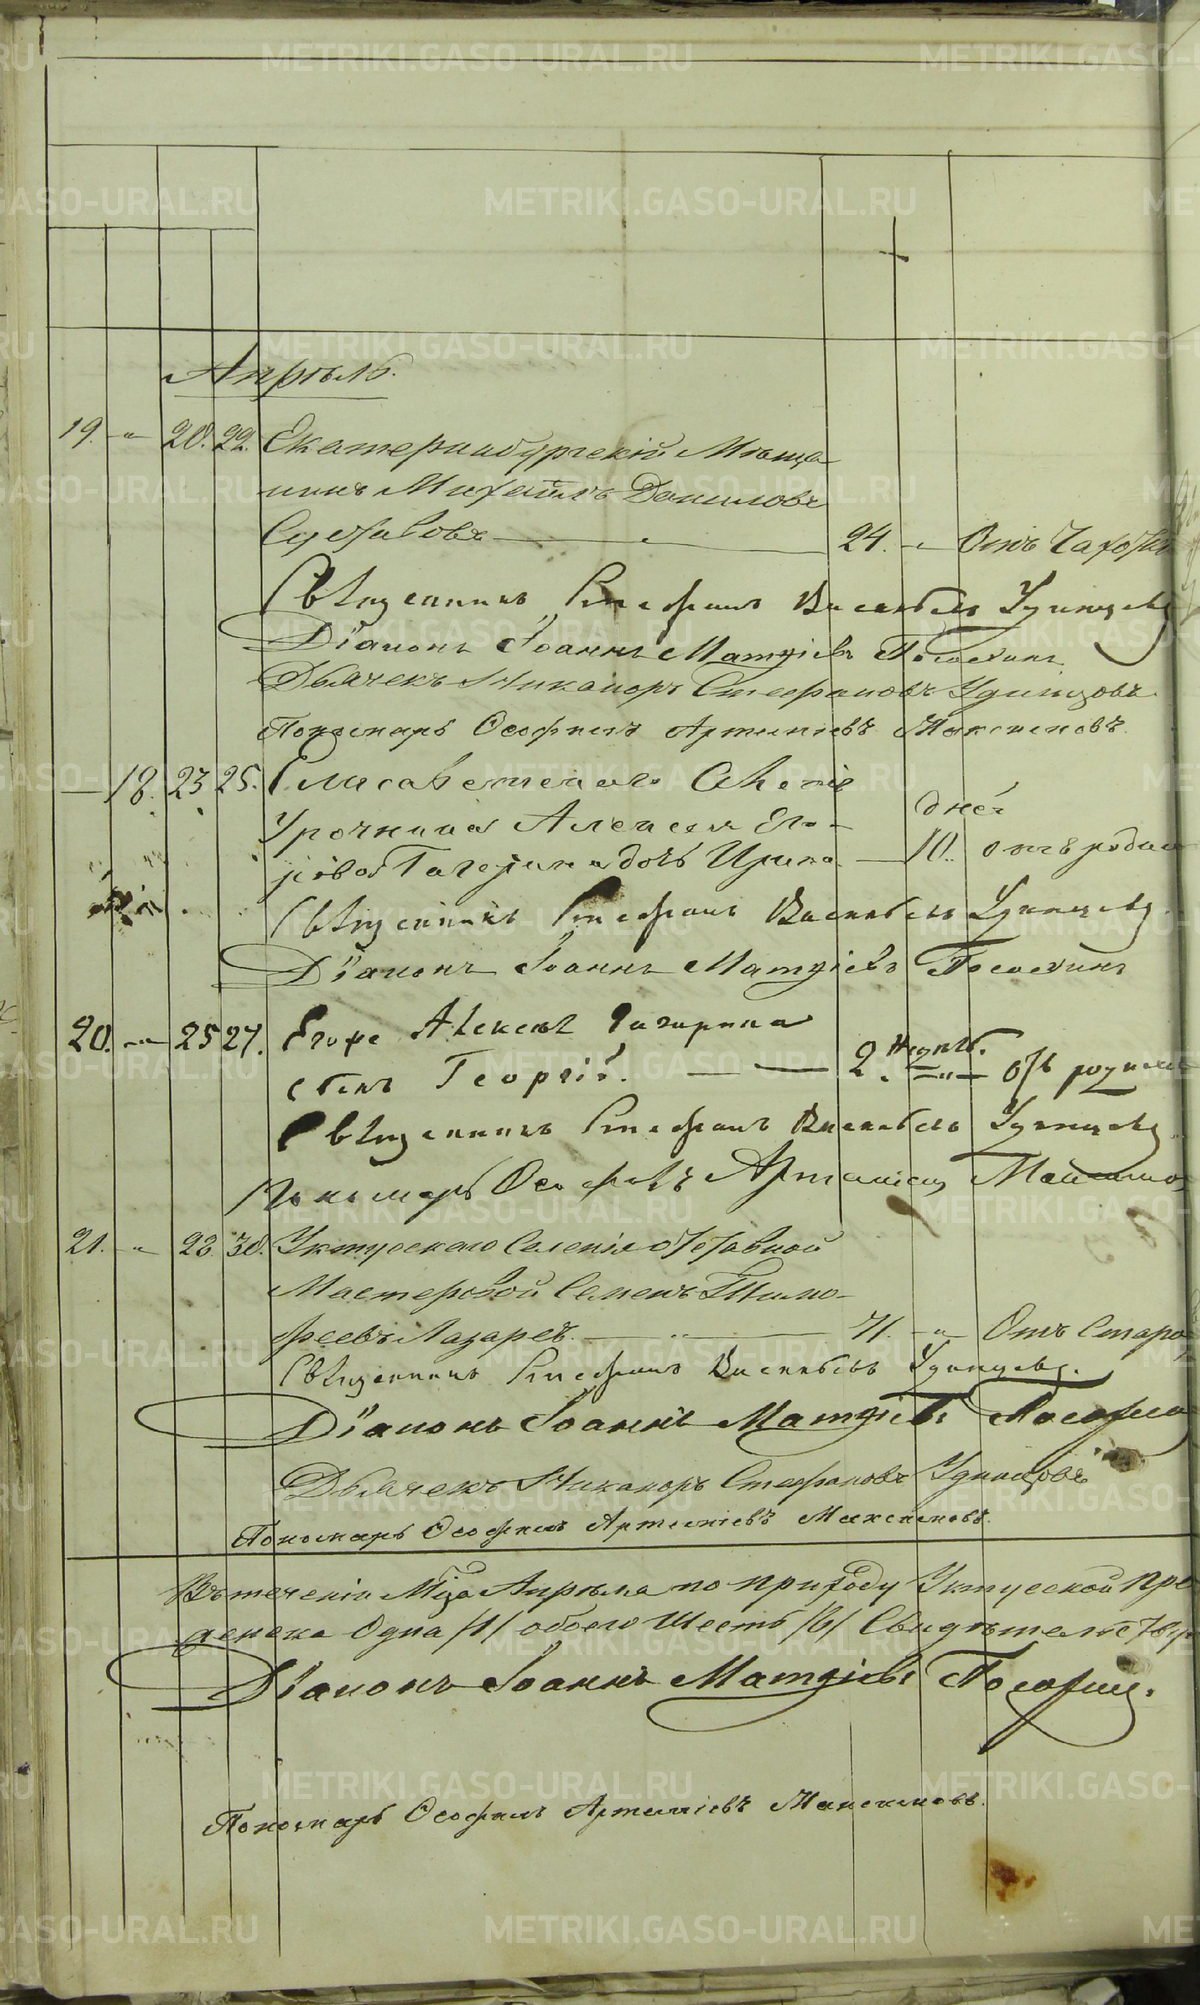 Апрѣль.
19. " 20. 22. Екатеринбургскій Мѣща-
нинъ Михаилъ Даниловъ
24. " Отъ Чахотки
Священникъ Стефанъ Васильевъ Удинцевъ
Діаконъ Іоаннъ Матѳіевъ Посохинъ
Дьячекъ Никаноръ Стефановъ Удинцовъ
Пономарь Ѳеофилъ Артеміевъ Максимовъ.
— 18. 23 25. Елисаветскаго Селенія
Урочника Алексея Его-
дней
рова Гагарина дочь Ирина — 10. отъ родим
Священникъ Стефанъ Васильевъ Удинцевъ.
Діаконъ Іоаннъ Матѳіевъ Посохинъ
20. " 25 27. Егоре Алексея Гагарина
сынъ Георгій. — 2. недѣль. отъ родим
Священникъ Стефанъ Васильевъ Удинцевъ.
Пономарь Артеміевъ
21. " 28. 30. Уктусскаго Селенія отставной
Мастеровой Семенъ Тимо-
феевъ Лазаревъ. — 71. " Отъ Старо
Священникъ Стефанъ Васильевъ Удинцевъ.
Діаконъ Іоаннъ Матѳіевъ Посохин
Дьячекъ Никаноръ Стефановъ Удинцовъ
Пономарь Ѳеофилъ Артеміевъ Максимовъ.
Въ теченіи М-ца Апрѣля по приходу Уктусской Пре
женска Одна /1/ обоего Шесть /6/ Свидѣтельству
Діаконъ Іоаннъ Матѳіевъ Посохинъ.
Пономарь Ѳеофилъ Артеміевъ Максимовъ.
METRIKI.GASO-URAL.RU